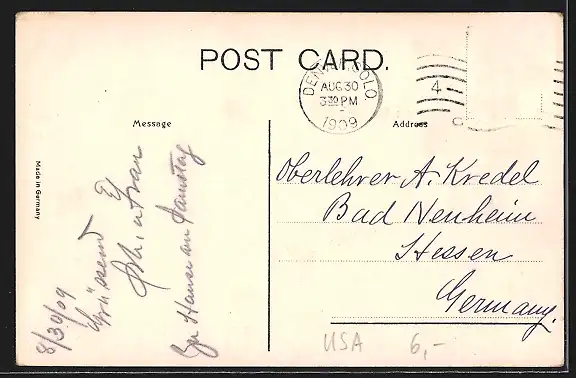 POST CARD.
DENVER, COLO.
AUG 30
3 30 PM
1909
4
Message
Address
Made in Germany
8/30/09
Grüssend
Oberlehrer A. Kredel
Bad Neuheim
Hessen
Germany.
USA 6,-